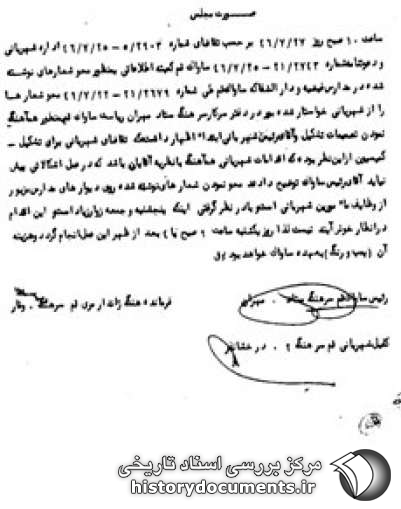 صورت مجلس
ساعت ۱۰ صبح روز ۴۶/۷/۲۷ بر حسب تقاضای شماره ۵/۲۹۰۳ - ۴۶/۷/۲۵ اداره شهربانی
و شماره ۲۱/۲۷۴۳ - ۴۶/۷/۲۵ ساواک قم کمیته اطلاعاتی بمنظور محو شعارهای نوشته
شده در مدارس فیضیه و دار الشفا که ساواک قم طی شماره ۲۱/۲۶۷۹ - ۴۶/۷/۲۲ محو شعارها
را از شهربانی خواستار شده بود در دفتر سرکار سرهنگ ستاد مهران ریاست ساواک قم بمنظور هم آهنگ
نمودن تصمیمات تشکیل و آقای رئیس شهربانی ابتدا اظهار داشتند که تقاضای شهربانی برای تشکیل
کمیسیون از این نظر بوده که اقدامات شهربانی هم آهنگ با نظریه آقایان باشد که در عمل اشکالاتی پیش
نیاید آقای رئیس ساواک توضیح دادند محو نمودن شعارهای نوشته شده روی دیوارهای مدارس مزبور
از وظایف مامورین شهربانی است و با در نظر گرفتن اینکه پنجشنبه و جمعه زوار زیاد است و این اقدام
در انظار خوش آیند نیست لذا روز یکشنبه ساعت ۶ صبح یا ۲ بعد از ظهر این عمل انجام گردد و هزینه
آن (پمپ و رنگ) بعهده ساواک خواهد بود
رئیس ساواک قم سرهنگ ستاد . مهران
فرمانده هنگ ژاندارمری قم سرهنگ . وقار
کفیل شهربانی قم سرهنگ ۲ . درخشان
مرکز بررسی اسناد تاریخی
historydocuments.ir